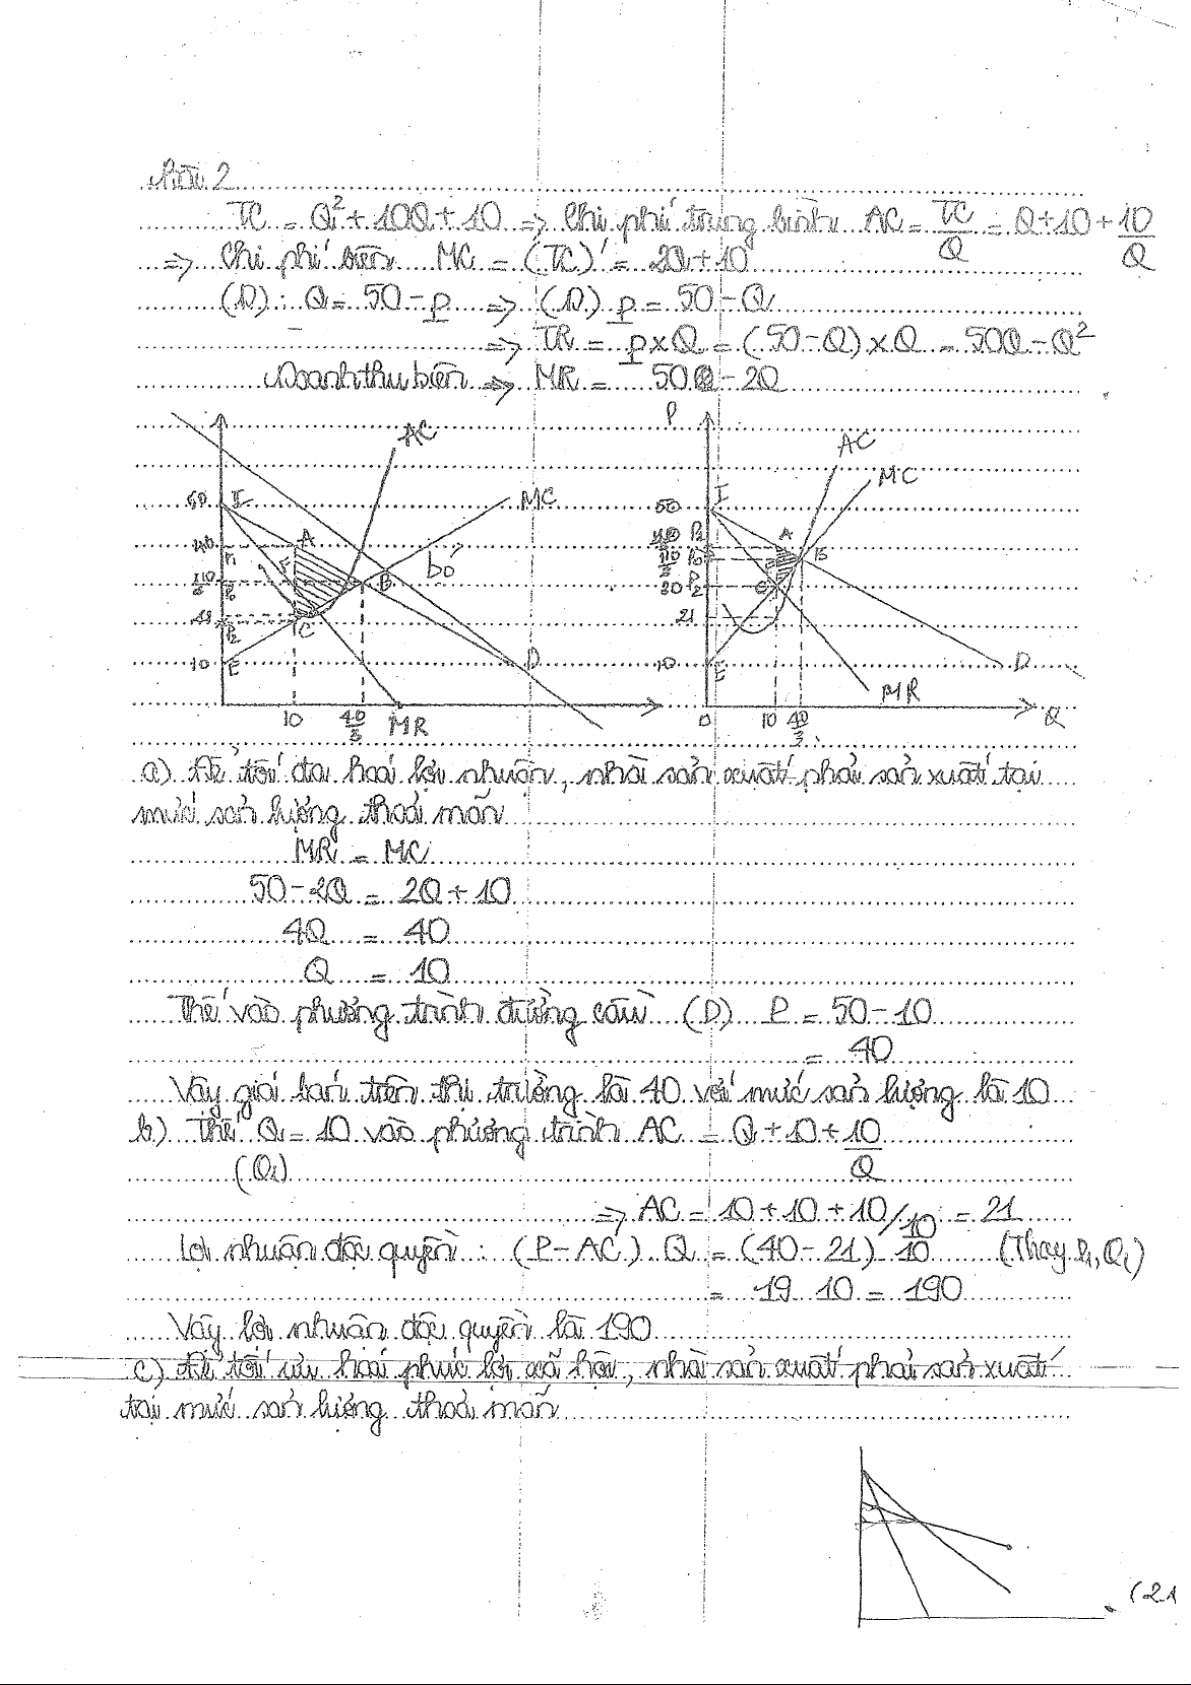 Bài 2
TC = Q² + 10Q + 10 => Chi phí trung bình AC = TC/Q = Q + 10 + 10/Q
=> Chi phí biên MC = (TC)' = 2Q + 10
(D): Q = 50 - P => (D) P = 50 - Q
=> TR = P x Q = (50 - Q) x Q = 50Q - Q²
Doanh thu biên => MR = 50 - 2Q
AC
MC
50 I
A
40
P₁
bỏ
F
B
P₀
C
P₂
10 E
D
10 40/3 MR
P
AC
MC
50 I
A
B
C
30 P₂
21
10 E
D
MR
0 10 40/3 Q
a) Để tối đa hoá lợi nhuận, nhà sản xuất phải sản xuất tại
mức sản lượng thoả mãn
MR = MC
50 - 2Q = 2Q + 10
4Q = 40
Q = 10
Thế vào phương trình đường cầu (D) P = 50 - 10
= 40
Vậy giá bán trên thị trường là 40 với mức sản lượng là 10
b) Thế Q = 10 vào phương trình AC = Q + 10 + 10/Q
(Q₁)
=> AC = 10 + 10 + 10/10 = 21
Lợi nhuận độc quyền : (P - AC). Q = (40 - 21) 10 (Thay P₁, Q₁)
= 19 10 = 190
Vậy lợi nhuận độc quyền là 190
c) Để tối ưu hoá phúc lợi xã hội, nhà sản xuất phải sản xuất
tại mức sản lượng thoả mãn
(21